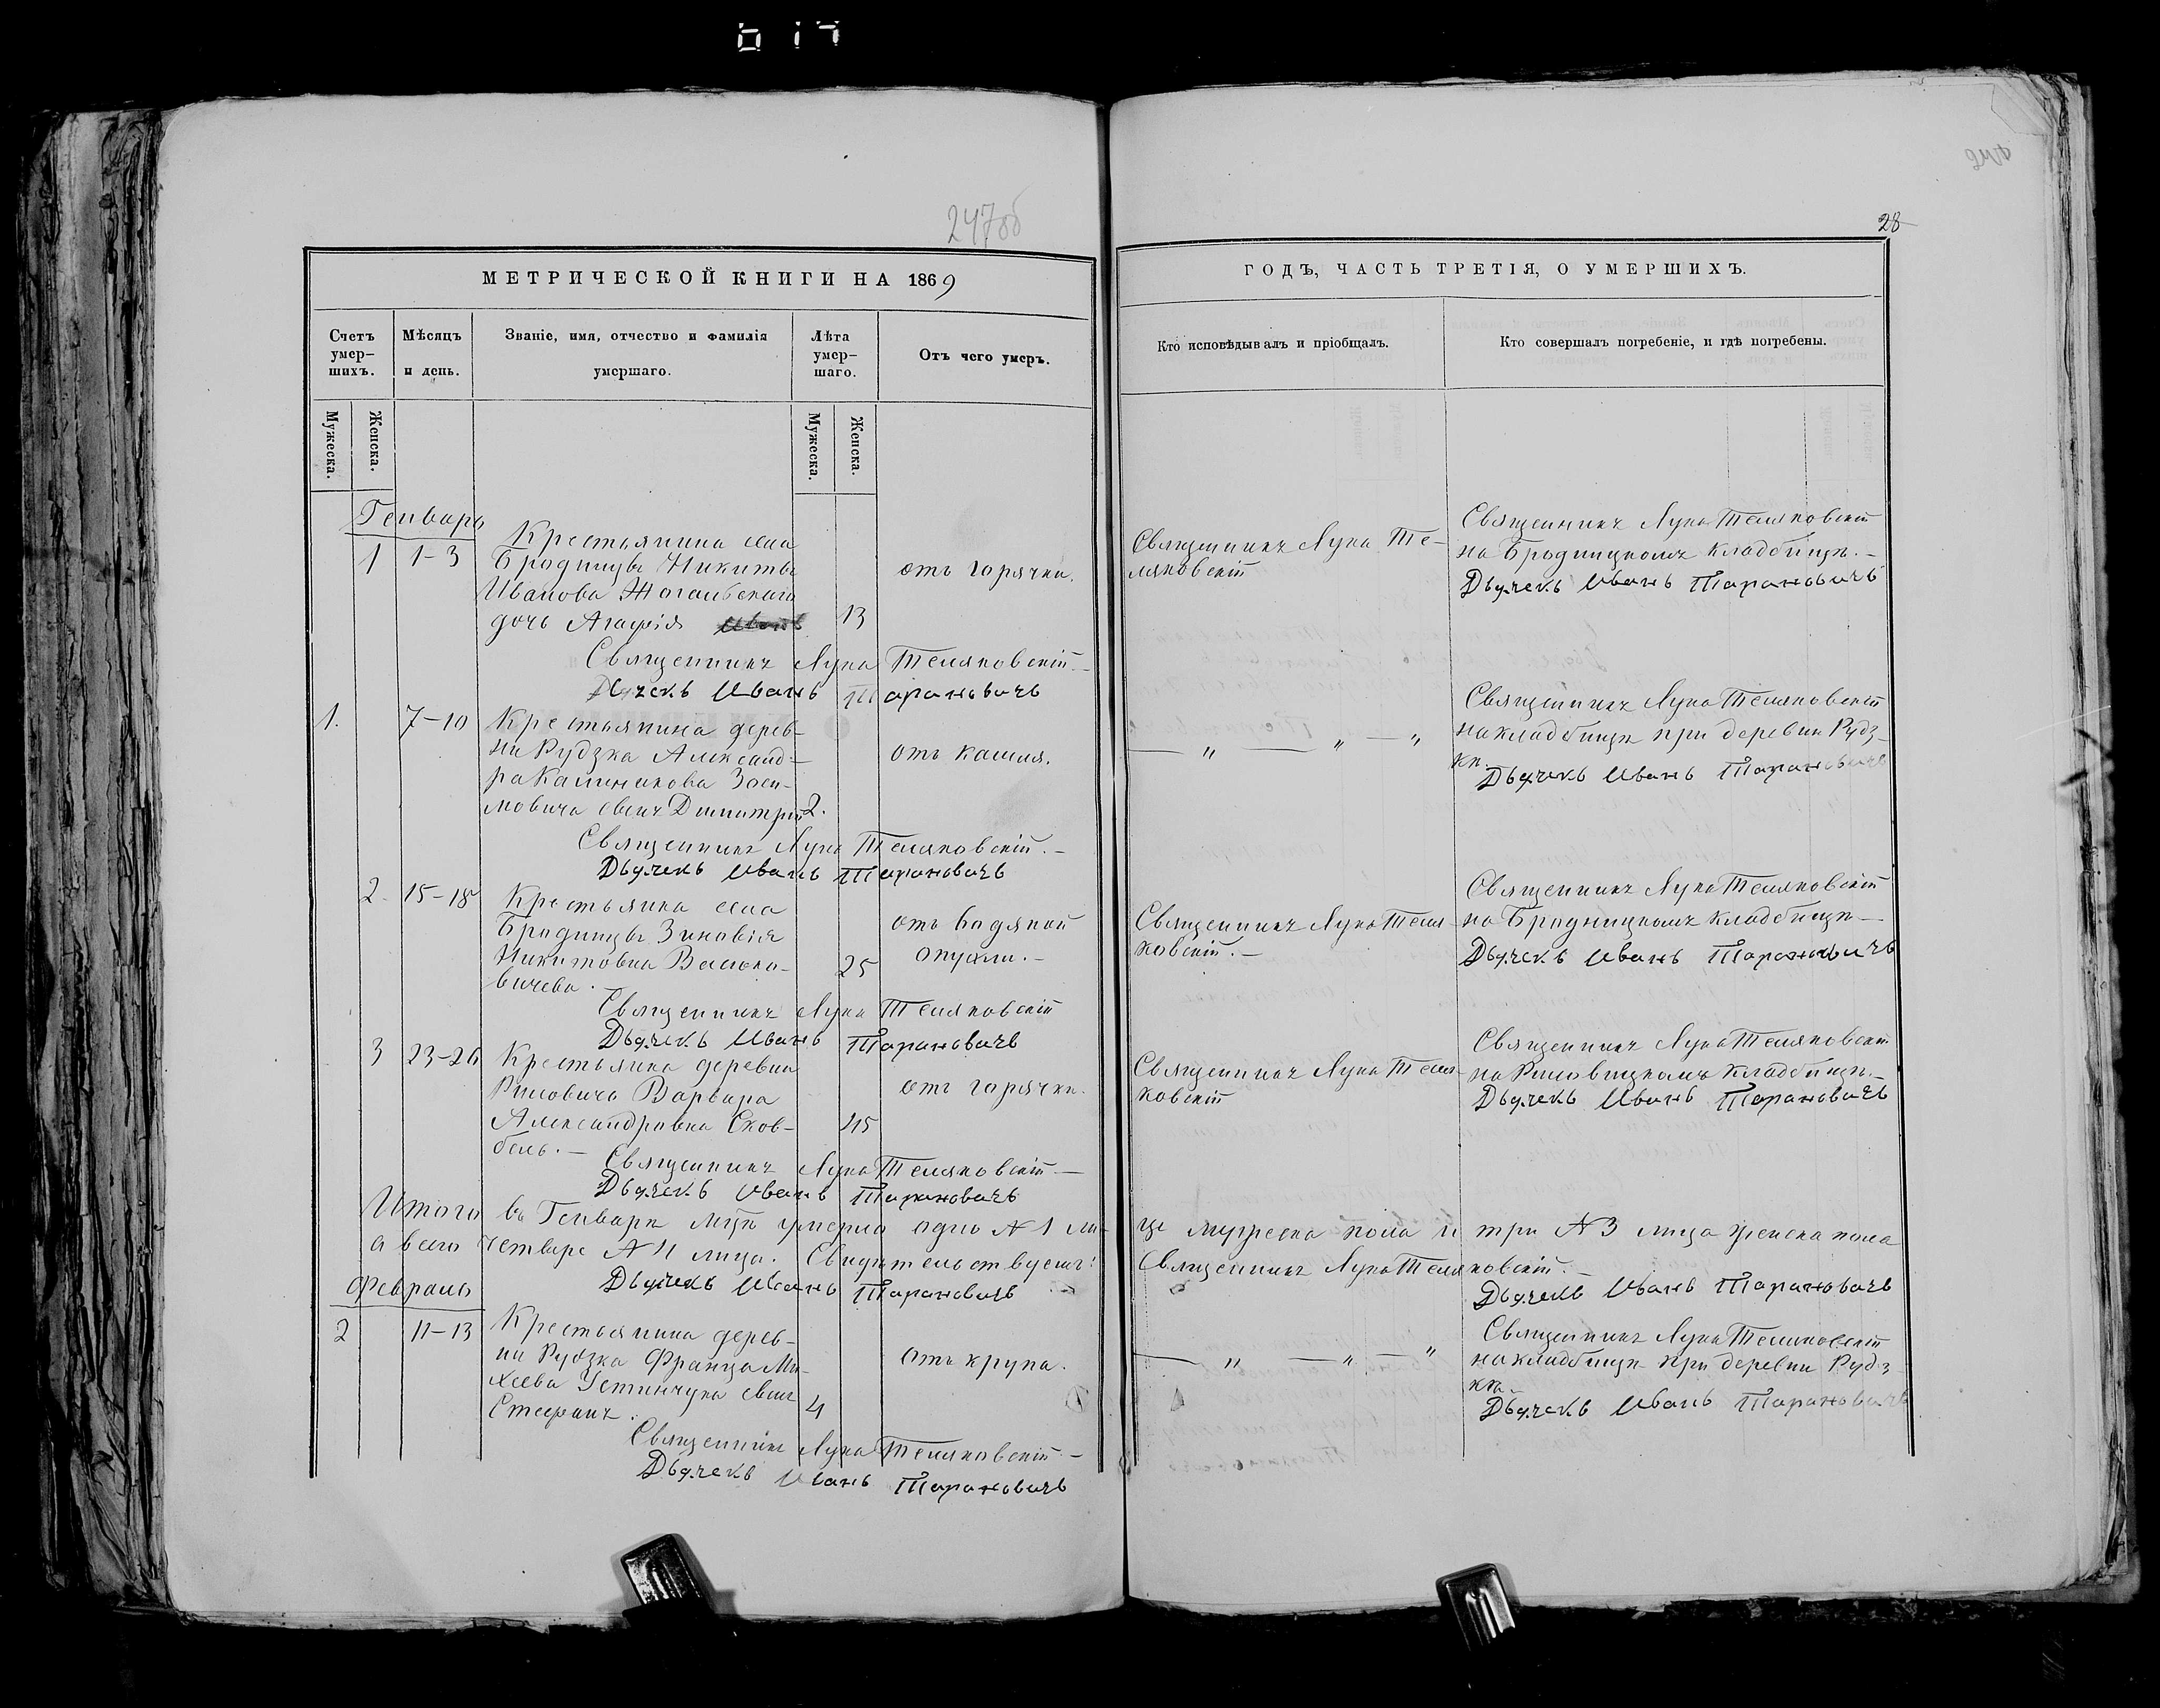 247об
28
МЕТРИЧЕСКОЙ КНИГИ НА 1869
Счетъ умер-шихъ.
Мѣсяцъ и день.
Званіе, имя, отчество и фамилія умершаго.
Лѣта умер-шаго.
Отъ чего умеръ.
Мужеска.
Женска.
Мужеска.
Женска.
Генварь
1 1-3 Крестьянина села
Бродницъ Никиты
Иванова
дочь Агафія 13
отъ горячки.
Священникъ Лука Теляковскій
Дьячекъ Иванъ Тарановичъ
1. 7-10 Крестьянина дерев-
ни Рудзка Александ-
ра Калиникова Зоси-
мовича сынъ Димитрій 2.
отъ кашля.
Священникъ Лука Теляковскій.-
Дьячекъ Иванъ Тарановичъ
2. 15-18 Крестьянка села
Бродницъ Зиновія
Никитовна
вичева. 25
отъ водяной
опухли.-
Священникъ Лука Теляковскій
Дьячекъ Иванъ Тарановичъ
3 23-26 Крестьянка деревни
Варвара
Александровна Сков-
бель.- 45
отъ горячки.
Священникъ Лука Теляковскій-
Дьячекъ Иванъ Тарановичъ
Итого въ Генварѣ мцѣ умерло одно №1 ли-
а всего четыре №4 лица. Свидѣтельствуетъ:
Дьячекъ Иванъ Тарановичъ
Февраль
2 11-13 Крестьянина дерев-
ни Рудзка Франца Ми-
хеева Устинчука сынъ
Стефанъ. 4
отъ крупа.
Священникъ Лука Теляковскій-
Дьячекъ Иванъ Тарановичъ
ГОДЪ, ЧАСТЬ ТРЕТІЯ, О УМЕРШИХЪ.
Кто исповѣдывалъ и пріобщалъ.
Кто совершалъ погребеніе, и гдѣ погребены.
Священникъ Лука Те-
ляковскій
Священникъ Лука Теляковскій
на Бродницкомъ кладбищѣ.-
Дьячекъ Иванъ Тарановичъ
— „ — „ — „
Священникъ Лука Теляковскій
на кладбищѣ при деревни Рудз-
кѣ.
Дьячекъ Иванъ Тарановичъ
Священникъ Лука Теля-
ковскій.-
Священникъ Лука Теляковскій
на Бродницкомъ кладбищѣ-
Дьячекъ Иванъ Тарановичъ
Священникъ Лука Теля-
ковскій
Священникъ Лука Теляковскій
на кладбищѣ.-
Дьячекъ Иванъ Тарановичъ
це мужеска пола и три №3 лица женска пола
Священникъ Лука Теляковскій.-
Дьячекъ Иванъ Тарановичъ
— „ — „ — „
Священникъ Лука Теляковскій
на кладбищѣ при деревни Рудз-
кѣ.-
Дьячекъ Иванъ Тарановичъ